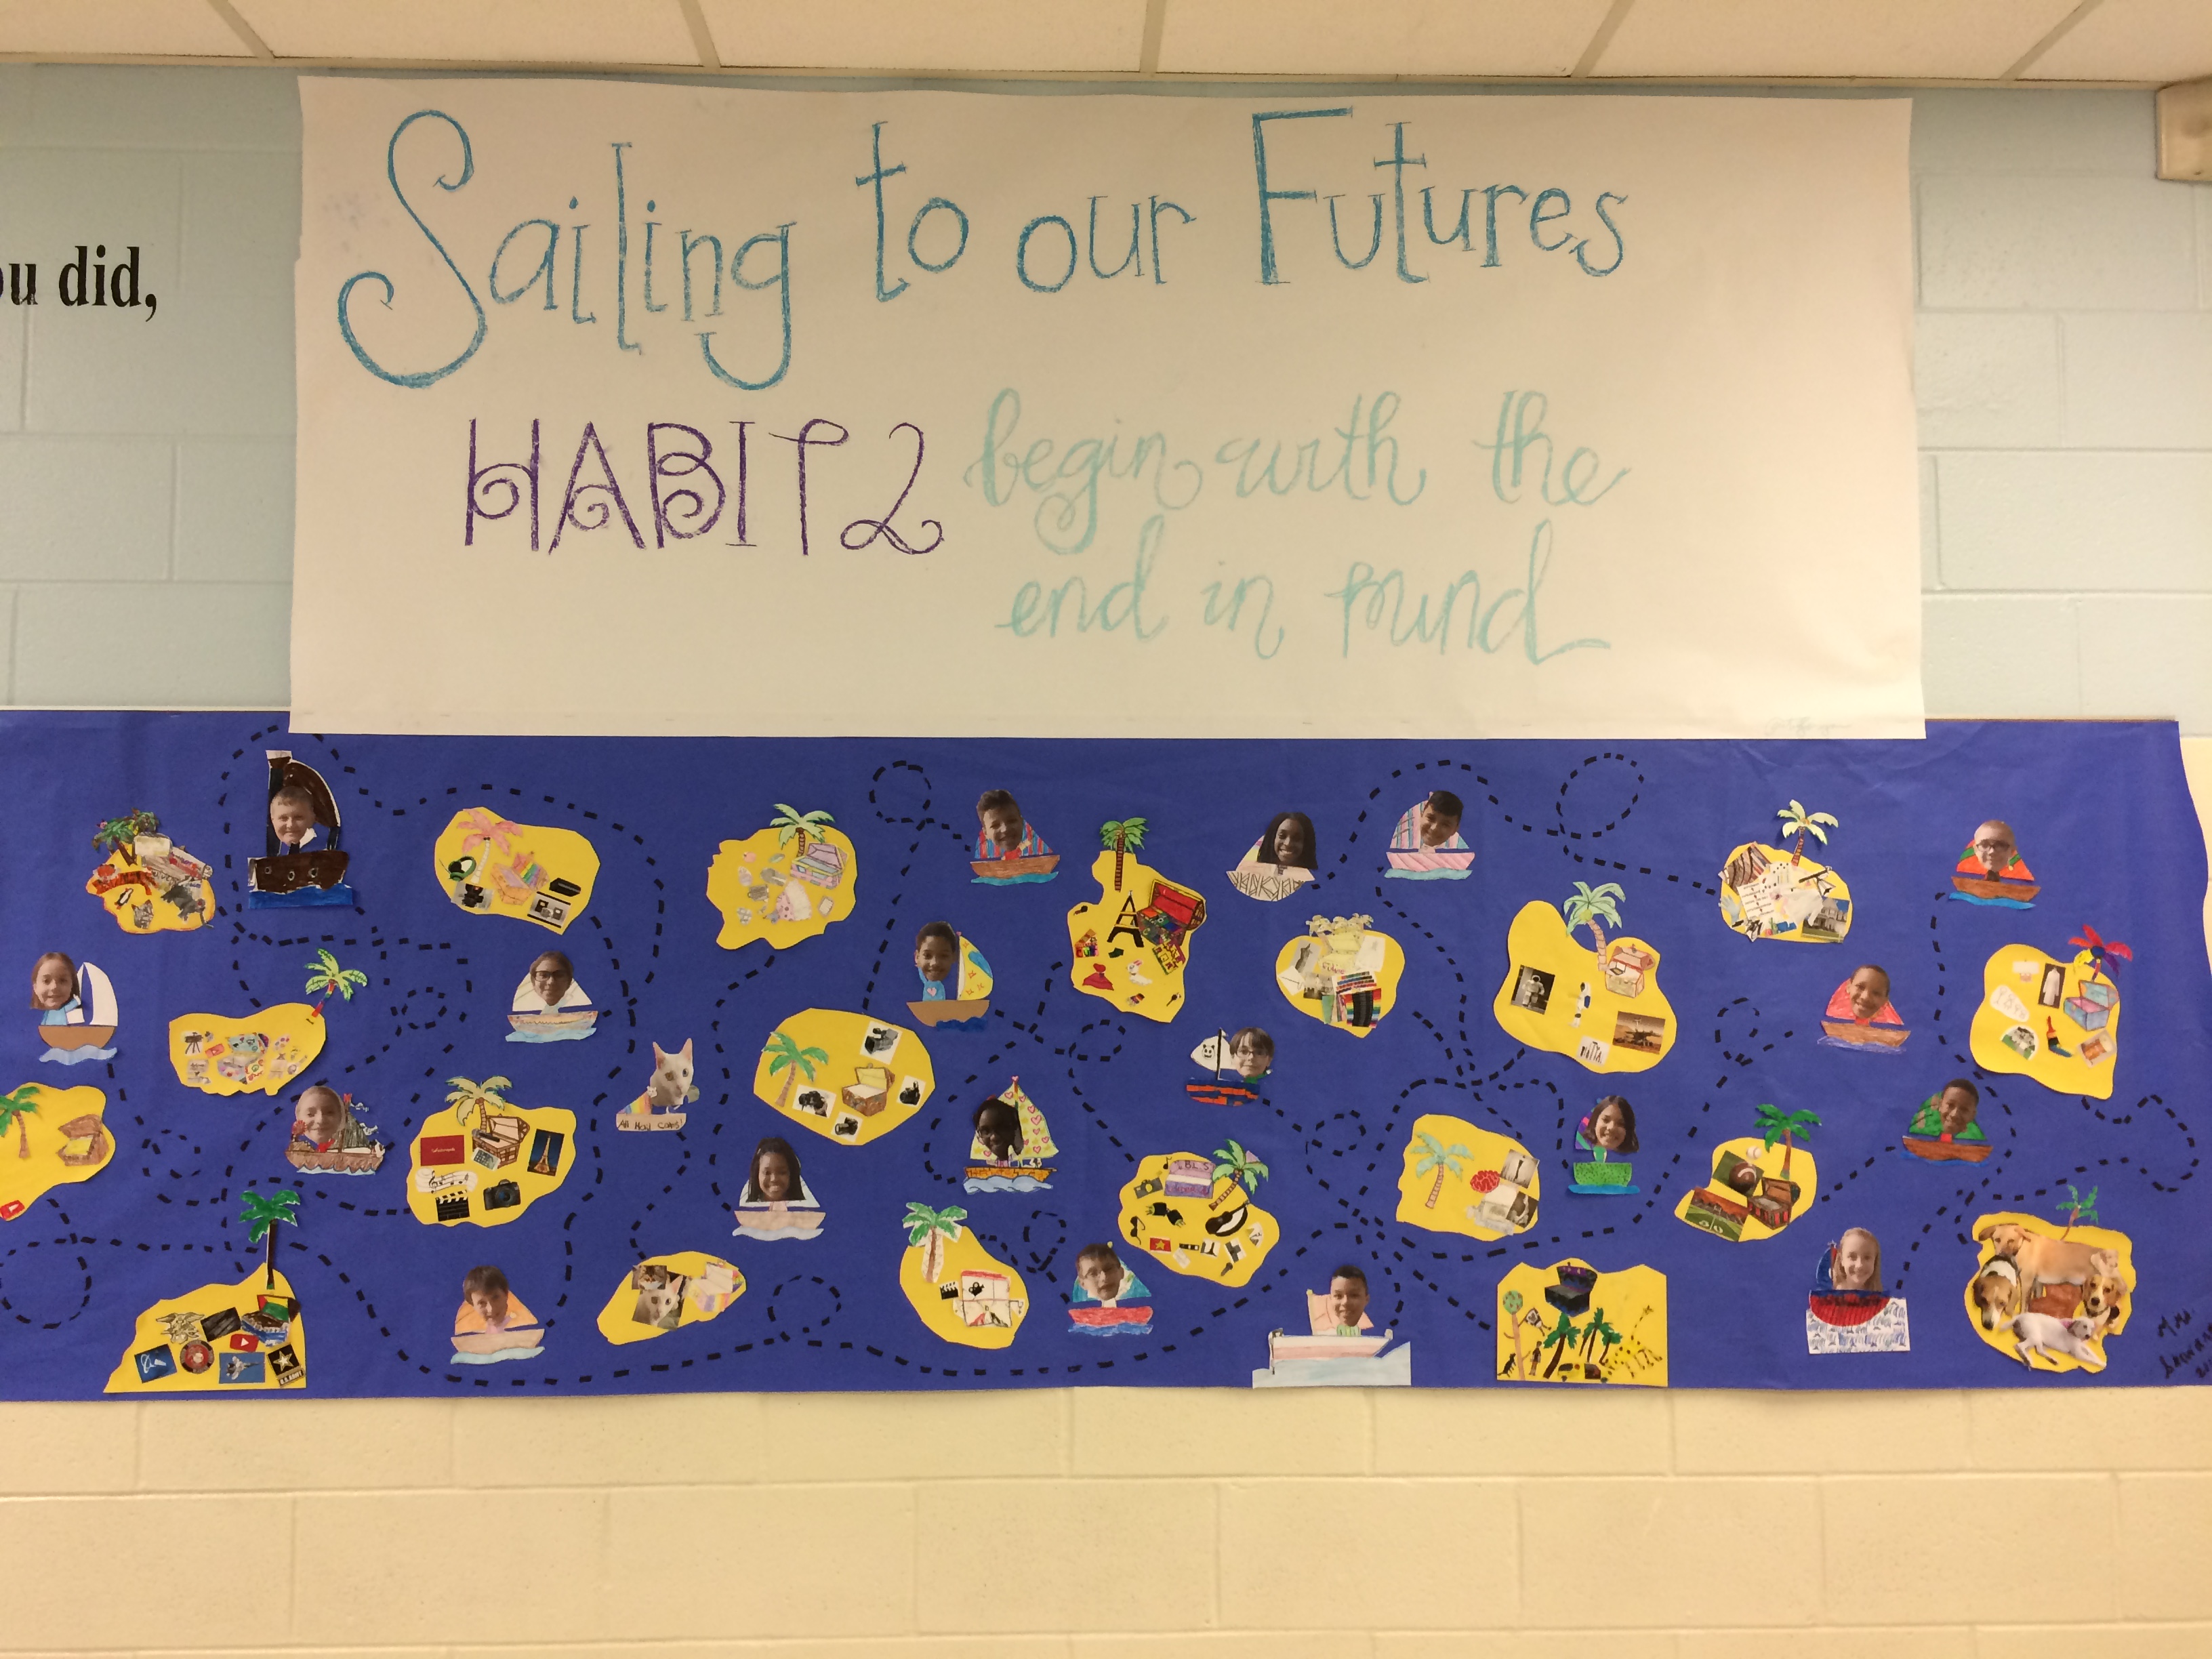 ou did,
Sailing to our Futures
HABIT 2 begin with the
end in mind
All May Cones!
NASA
BLS
U.S. ARMY
Mrs.